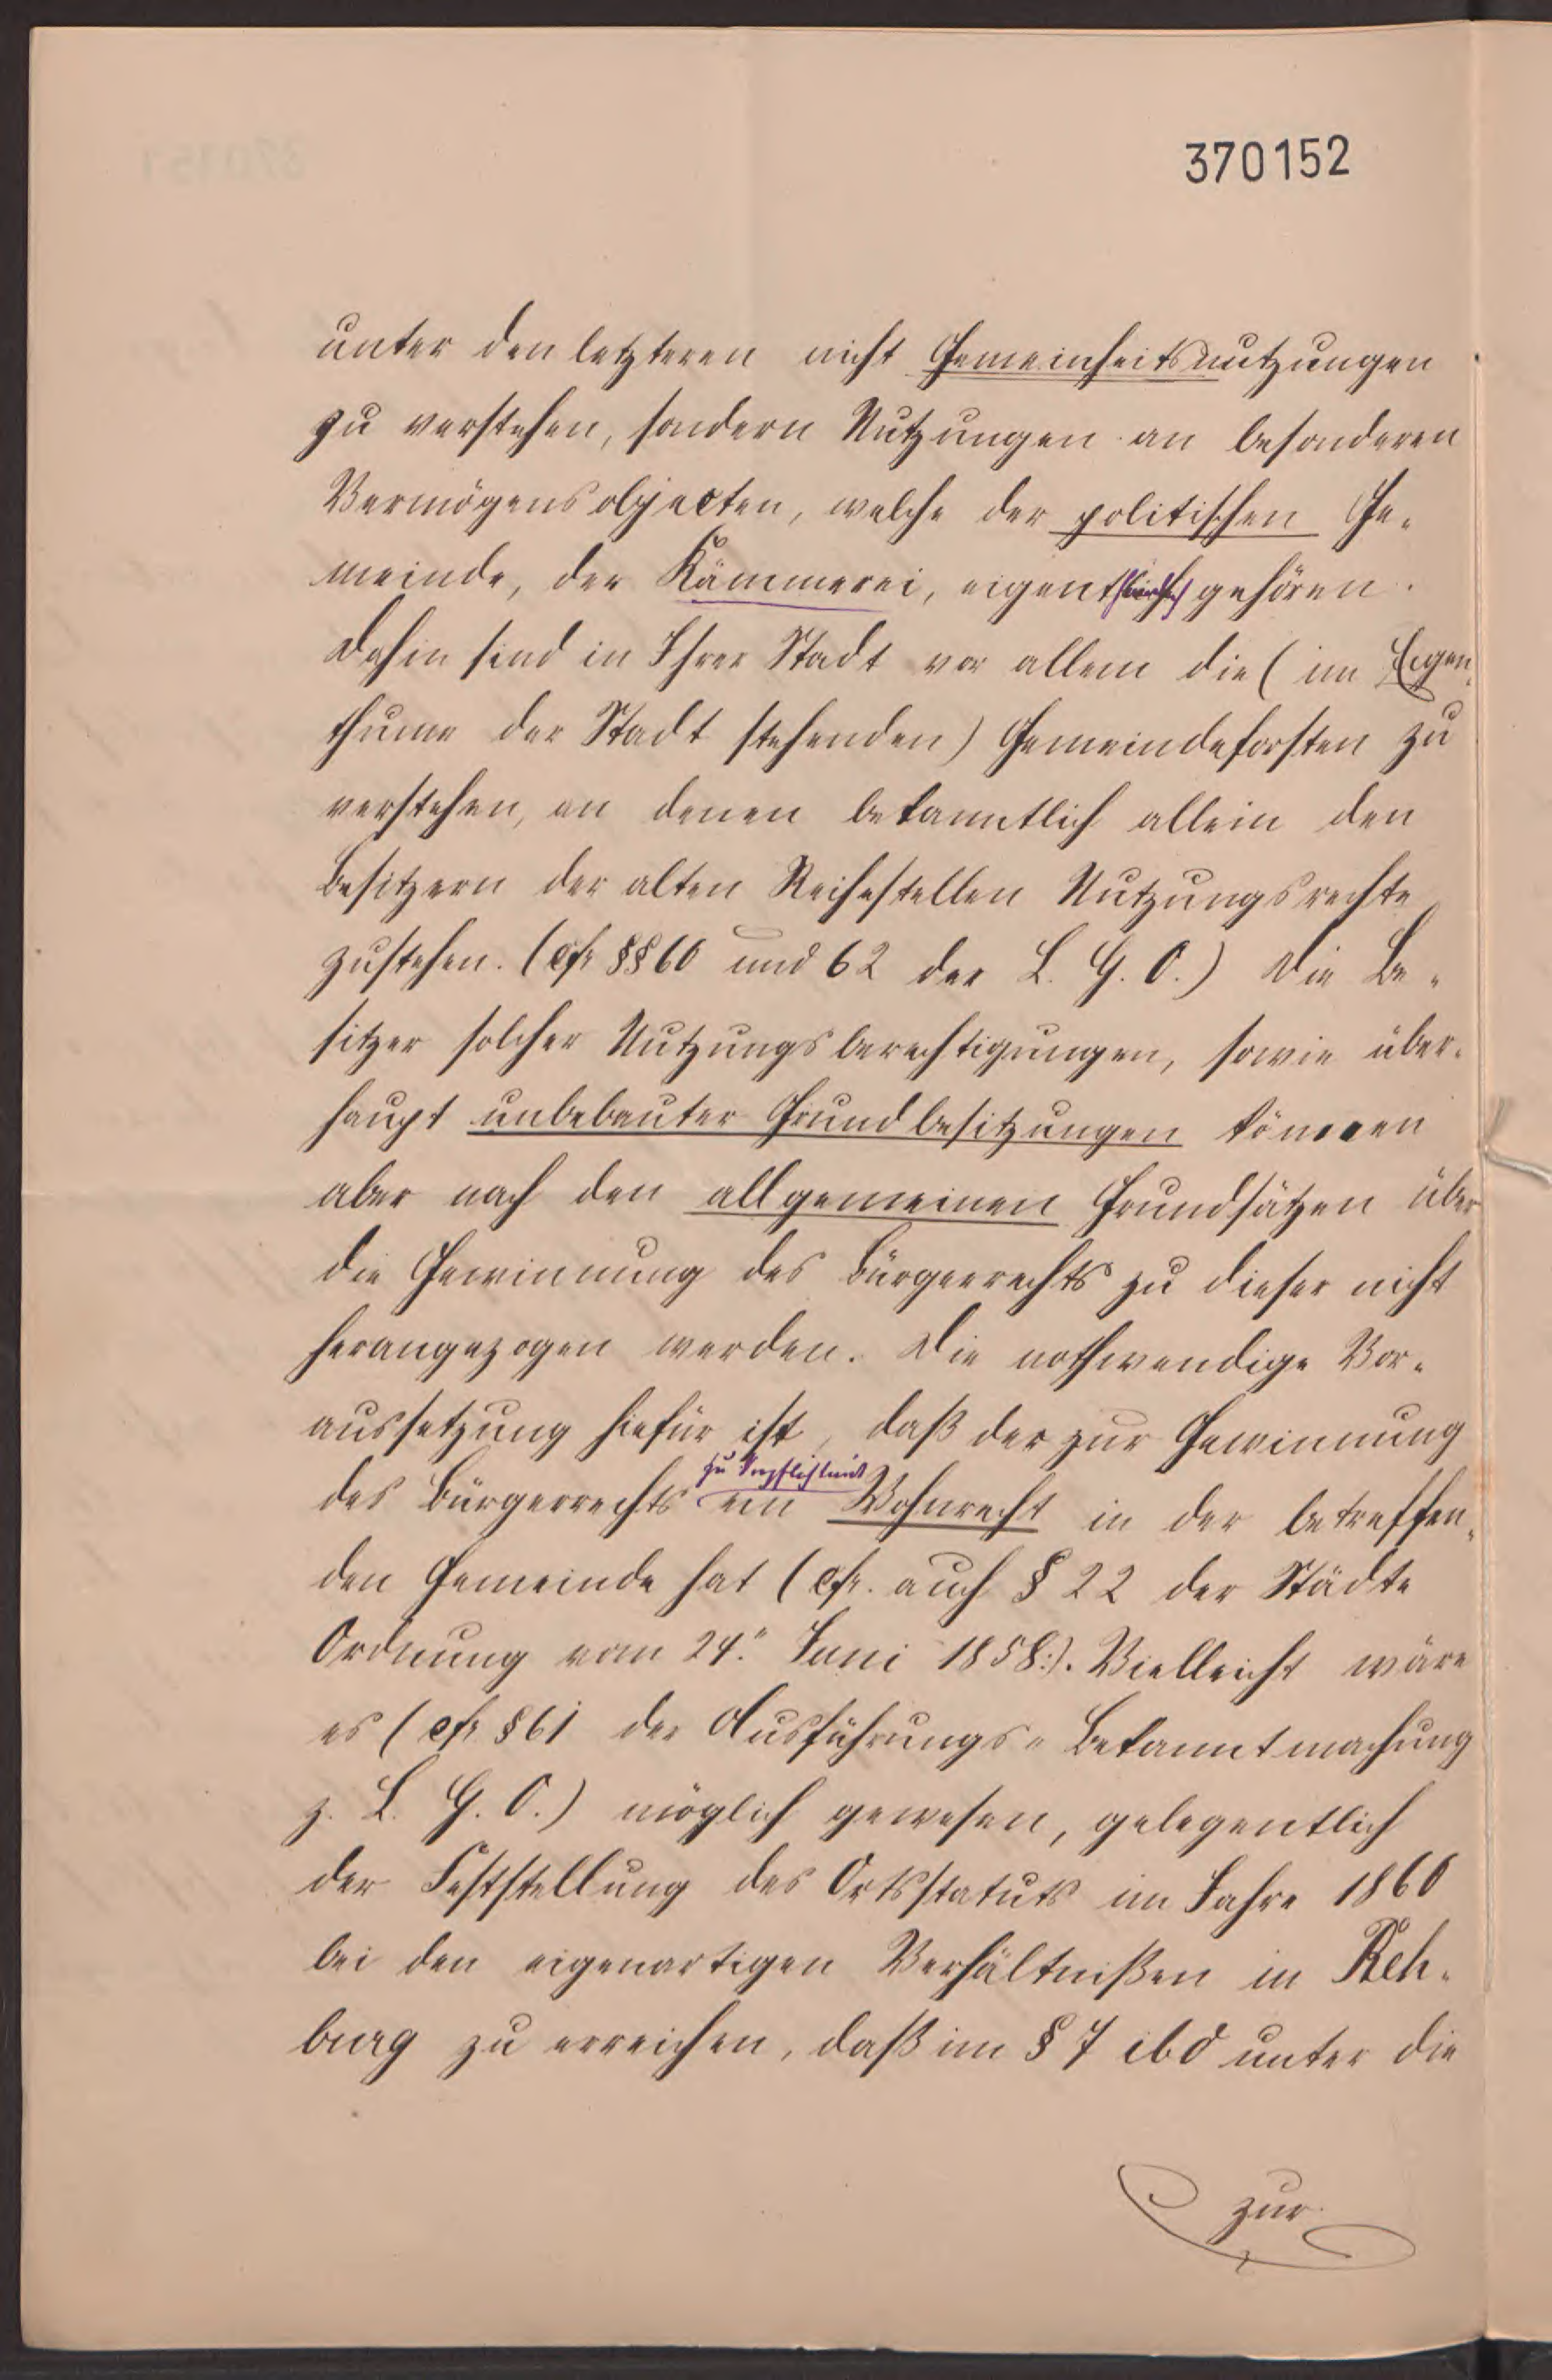 370152
unter den letzteren nicht Gemeinheitsnutzungen
zu verstehen, sondern Nutzungen an besonderen
Vermögensobjecten, welche der politischen Ge-
meinde, der Kämmerei, eigenthümlich gehören.
Dahin sind in Ihrer Stadt vor allem die (im Eigen-
thume der Stadt stehenden) Gemeindeforsten zu
verstehen, an denen bekanntlich allein den
Besitzern der alten Reihestellen Nutzungsrechte
zustehen. (cfr §§ 60 und 62 der L. G. O.) Die Be-
sitzer solcher Nutzungsberechtigungen, sowie über-
haupt unbebauter Grundbesitzungen können
aber nach den allgemeinen Grundsätzen über
die Gewinnung des Bürgerrechts zu dieser nicht
herangezogen werden. Die nothwendige Vor-
aussetzung hiefür ist, daß der zur Gewinnung
zu Verpflichtende
des Bürgerrechts ein Wohnrecht in der betreffen-
den Gemeinde hat (cfr. auch § 22 der Städte
Ordnung vom 24." Juni 1858:). Vielleicht wäre
es (cfr § 61 der Ausführungs-Bekanntmachung
z. L. G. O.) möglich gewesen, gelegentlich
der Feststellung des Ortsstatuts im Jahre 1860
bei den eigenartigen Verhältnißen in Reh-
burg zu erreichen, daß im § 7 ibd unter die
zur